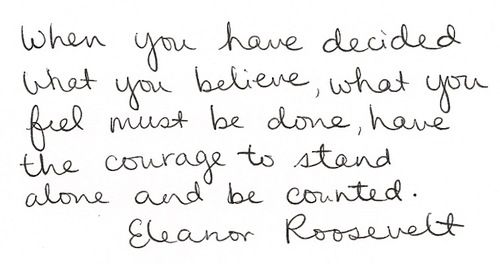 When you have decided
what you believe, what you
feel must be done, have
the courage to stand
alone and be counted.
Eleanor Roosevelt